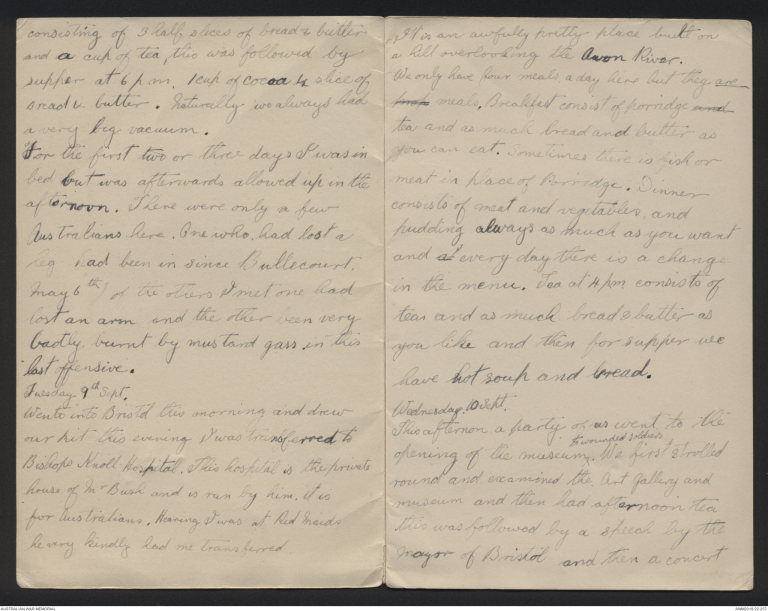 consisting of 3 half slices of bread & butter
and a cup of tea, this was followed by
supper at 6 p.m. 1 cup of cocoa & slice of
bread & butter. Naturally we always had
a very big vacuum.
For the first two or three days I was in
bed but was afterwards allowed up in the
afternoon. There were only a few
Australians here. One who, had lost a
leg had been in since Bullecourt.
May 6th, of the others I met one had
lost an arm and the other been very
badly burnt by mustard gass in this
last offensive.
Tuesday 9th Sept.
Wente into Bristol this morning and drew
our kit this evening I was transferred to
Bishops Knoll Hospital. This hospital is the private
house of Mr Bush and is run by him. it is
for Australians. Hearing I was at Red Maids
he very kindly had me transferred.
It is an awfully pretty place built on
a hill overlooking the Avon River.
We only have four meals a day here but they are
meals. Breakfast consist of porridge and
tea and as much bread and butter as
you can eat. Sometimes there is fish or
meat in place of Porridge. Dinner
consists of meat and vegetables, and
pudding always as much as you want
and every day there is a change
in the menu. Tea at 4 pm consists of
tea and as much bread & butter as
you like and then for supper we
have hot soup and bread.
Wednesday. 10 Sept.
This afternon a party of us went to the
opening of the museum to wounded soldiers. We first strolled
round and examined the Art Gallery and
museum and then had afternoon tea
this was followed by a speech by the
mayor of Bristol and then a concert
AUSTRALIAN WAR MEMORIAL